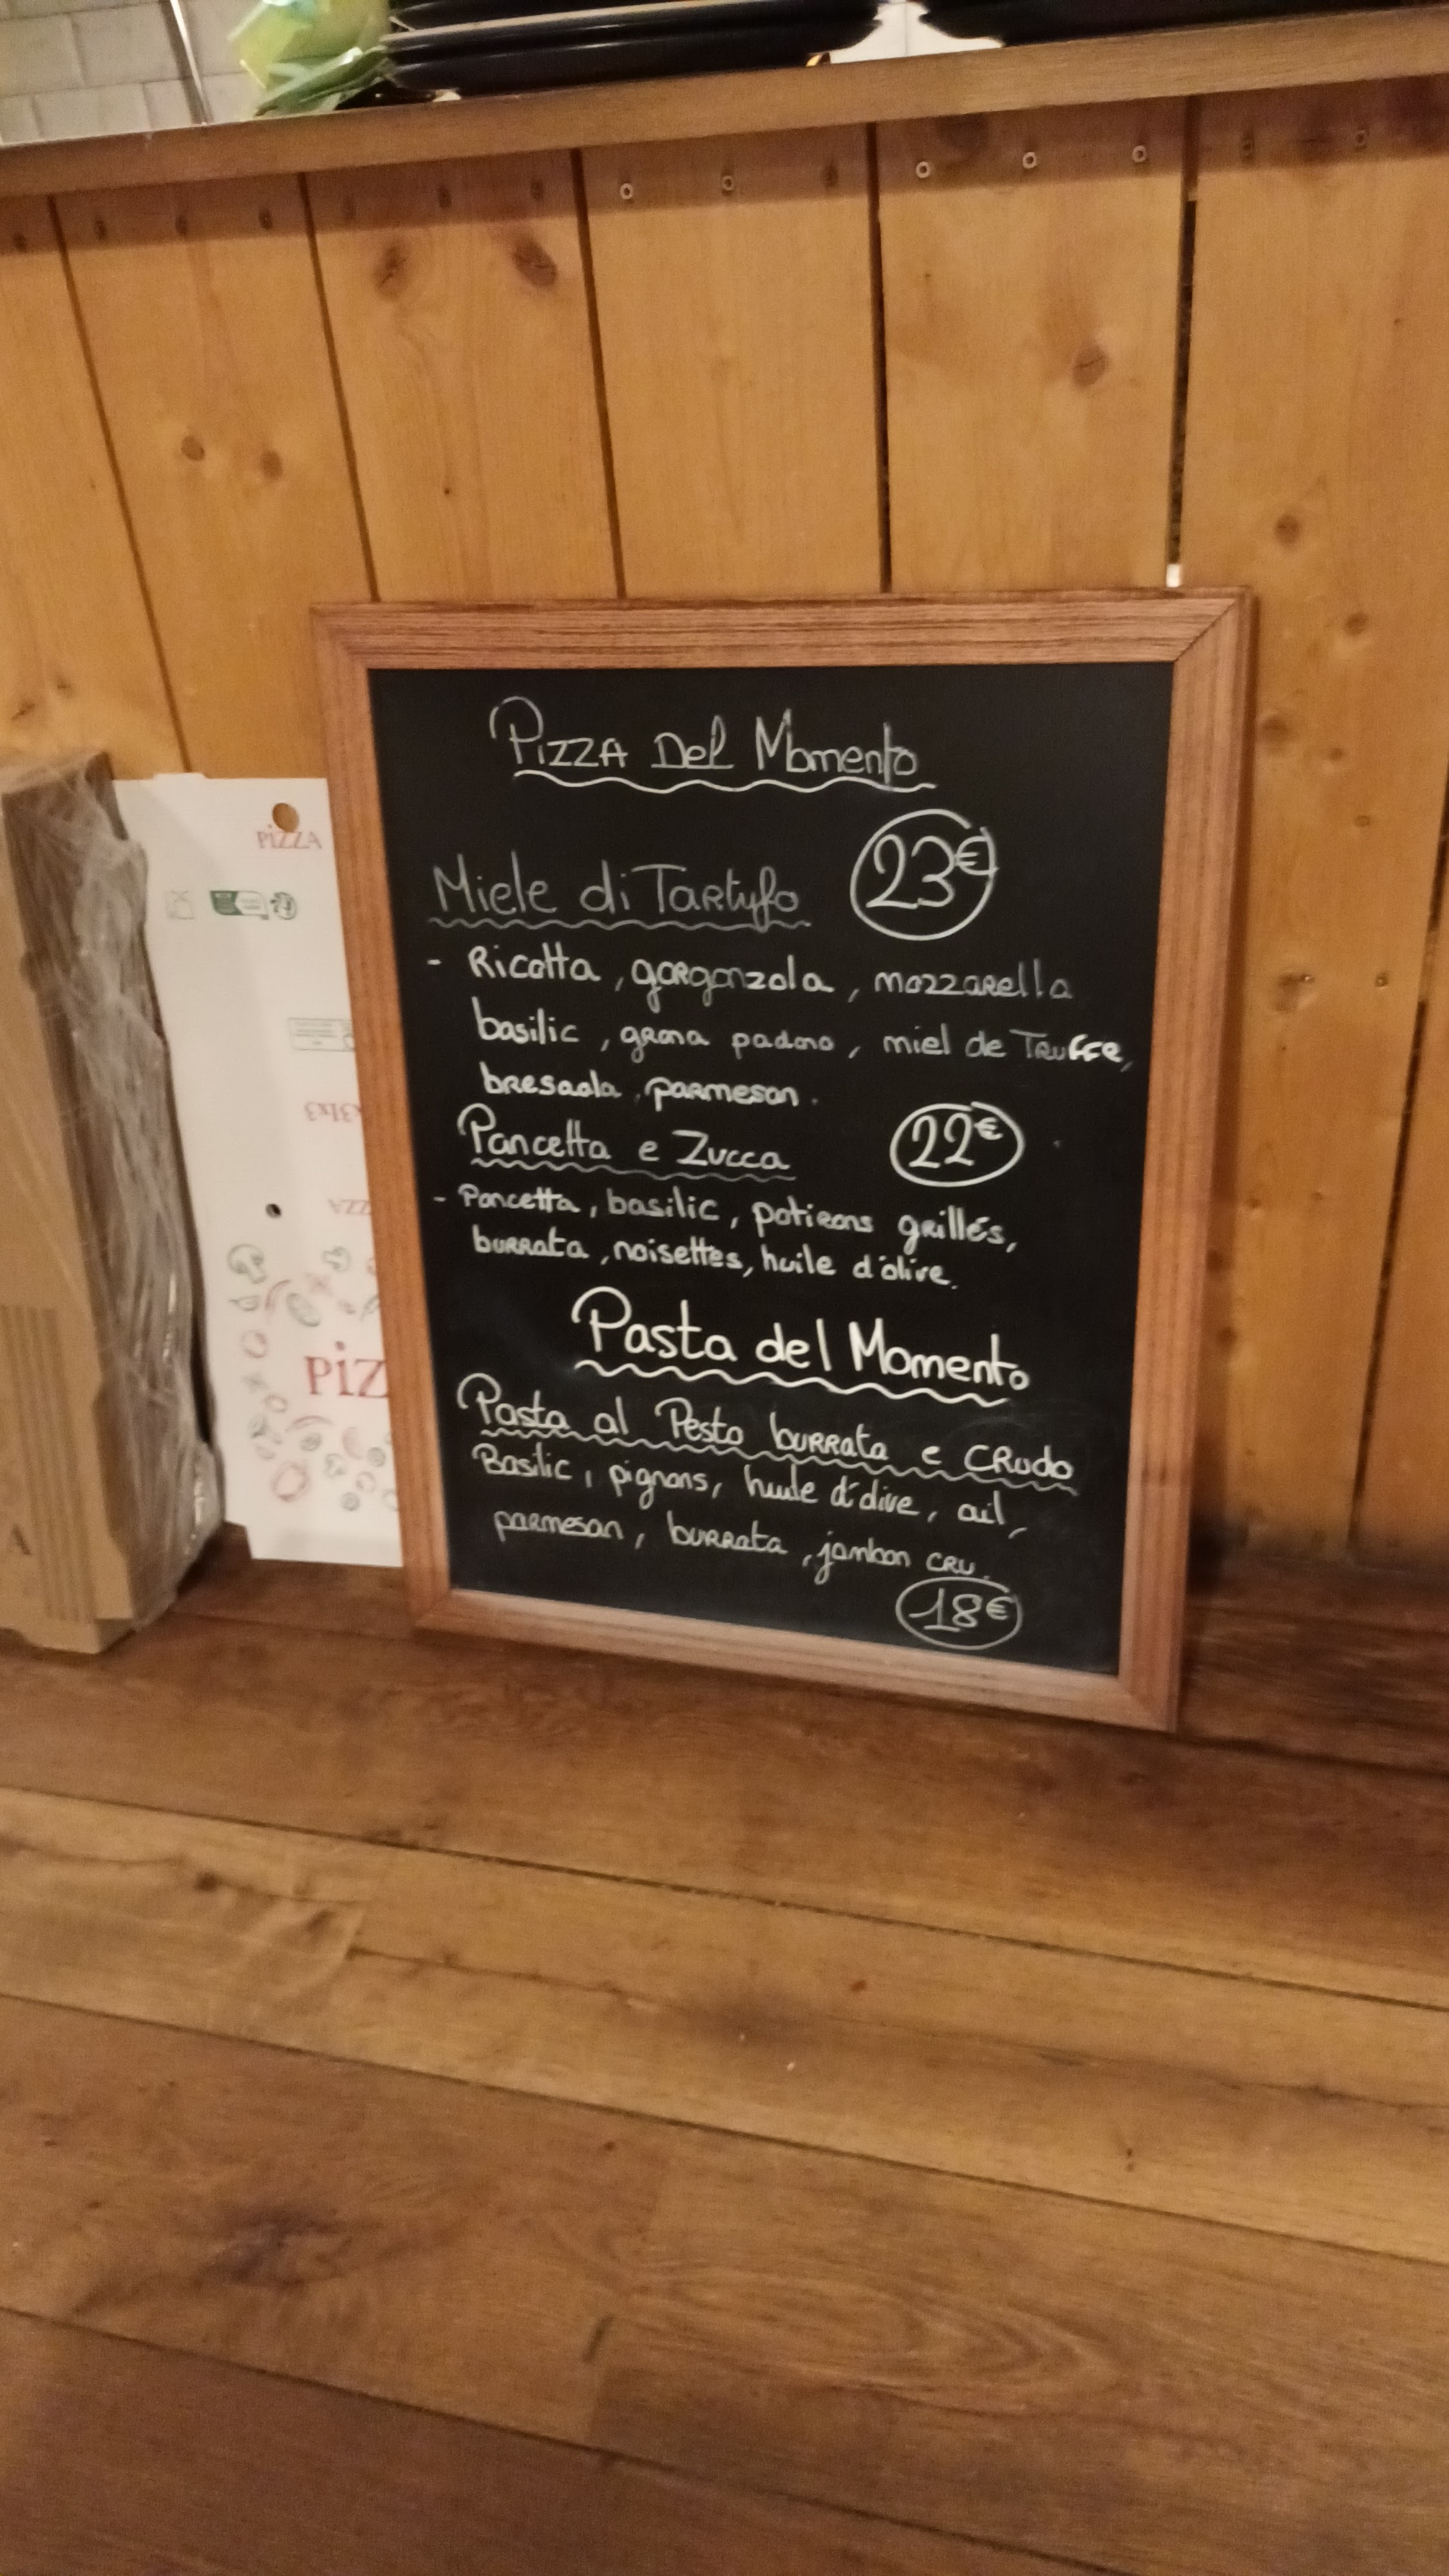 Pizza Del Momento
Miele di Tartufo 23€
- Ricotta, gorgonzola, mozzarella
basilic, grana padano, miel de Truffe,
bresaola, parmesan.
Pancetta e Zucca 22€
- Pancetta, basilic, potirons grillés,
burrata, noisettes, huile d'olive.
Pasta del Momento
Pasta al Pesto burrata e CRudo
Basilic, pignons, huile d'olive, ail,
parmesan, burrata, jambon cru.
18€
PIZZA
PIZ
A